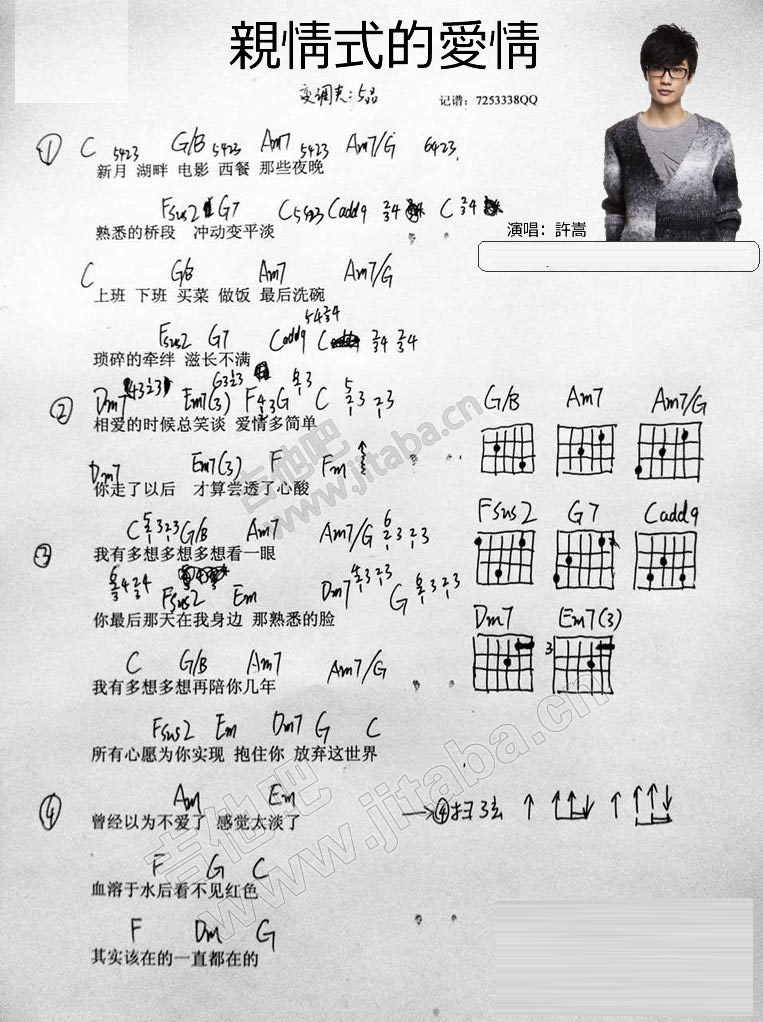 親情式的愛情
变调夹:5品 记谱：7253338QQ
① C 5423 G/B 5423 Am7 5423 Am7/G 6423
新月 湖畔 电影 西餐 那些夜晚
Fsus2 G7 C5423 Cadd9 C
熟悉的桥段 冲动变平淡
演唱：許嵩
C G/B Am7 Am7/G
上班 下班 买菜 做饭 最后洗碗
Fsus2 G7 Cadd9 C
琐碎的牵绊 滋长不满
② Dm7 Em7(3) F G C
相爱的时候总笑谈 爱情多简单
G/B Am7 Am7/G
Dm7 Em7(3) F Fm
你走了以后 才算尝透了心酸
Fsus2 G7 Cadd9
③ C G/B Am7 Am7/G
我有多想多想多想看一眼
Fsus2 Em Dm7 G
你最后那天在我身边 那熟悉的脸
Dm7 Em7(3)
3
C G/B Am7 Am7/G
我有多想多想再陪你几年
Fsus2 Em Dm7 G C
所有心愿为你实现 抱住你 放弃这世界
④ Am Em
曾经以为不爱了 感觉太淡了
→④扫弦 ↑ ↑↑↓ ↑ ↑↑↓
F G C
血溶于水后看不见红色
F Dm G
其实该在的一直都在的
吉他吧
www.jitaba.cn
吉他吧
www.jitaba.cn